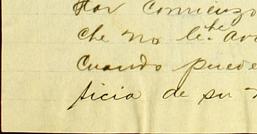 Por comienzo
che no le
Cuando puede
ticia de su